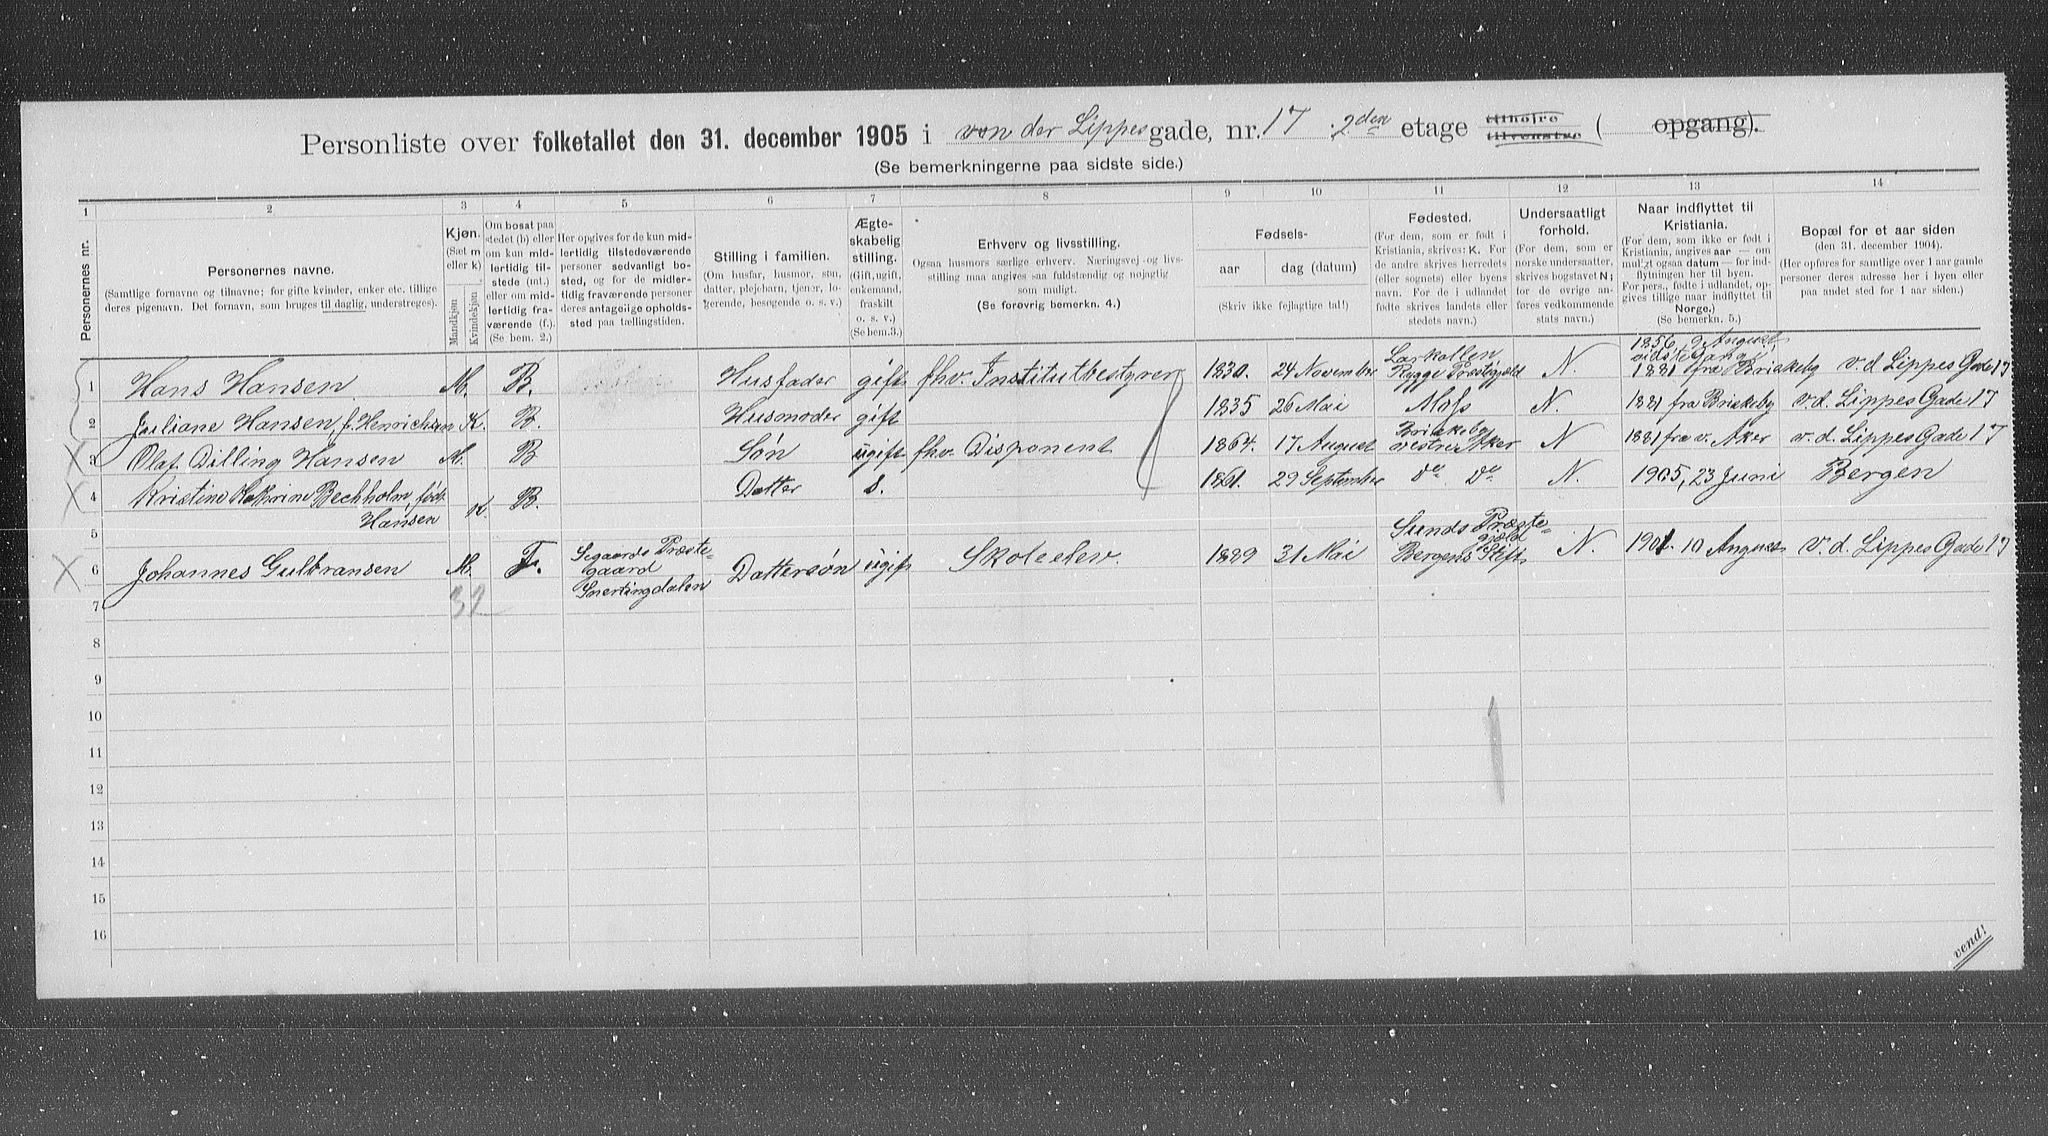 Personliste over folketallet den 31. december 1905 i von der Lippes gade, nr. 17. 2den etage tilhøjre tilvenstre ( opgang).
(Se bemerkningerne paa sidste side.)
1 2 3 4 5 6 7 8 9 10 11 12 13 14
Personernes nr.
Personernes navne.
(Samtlige fornavne og tilnavne; for gifte kvinder, enker etc. tillige
deres pigenavn. Det fornavn, som bruges til daglig, understreges).
Kjøn.
(Sæt m
eller k)
Mandkjøn
Kvindekjøn
Om bosat paa
stedet (b) eller
om kun mid-
lertidig til-
stede (mt.)
eller om mid-
lertidig fra-
værende (f.).
(Se bem. 2.)
Her opgives for de kun mid-
lertidig tilstedeværende
personer sedvanligt bo-
sted, og for de midler-
tidig fraværende personer
deres antagelige opholds-
sted paa tællingstiden.
Stilling i familien.
(Om husfar, husmor, søn,
datter, plejebarn, tjener, lo-
gerende, besøgende o. s. v.)
Ægte-
skabelig
stilling.
(Gift, ugift,
enkemand,
fraskilt
o. s. v.)
(Se bem. 3.)
Erhverv og livsstilling.
Ogsaa husmors særlige erhverv. Næringsvej og livs-
stilling maa angives saa fuldstændig og nøjagtig
som muligt.
(Se forøvrig bemerkn. 4.)
Fødsels-
aar dag (datum)
(Skriv ikke fejlagtige tal!)
Fødested.
(For dem, som er født i
Kristiania, skrives: K. For
de andre skrives herredets
(eller sognets) eller byens
navn. For de i udlandet
fødte skrives landets eller
stedets navn.)
Undersaatligt
forhold.
(For de
norske undersaatter,
skrives bogstavet N;
for de øvrige an-
føres vedkommende
stats navn.)
Naar indflyttet til
Kristiania.
(For dem, som ikke er født i
Kristiania, angives aar — om
muligt ogsaa datum — for ind-
flytningen her til byen.
For pers., fødte i udlandet, op-
gives tillige naar indflyttet til
Norge.)
(Se bemerkn. 5.)
Bopæl for et aar siden
(den 31. december 1904).
(Her opføres for samtlige over 1 aar gamle
personer deres adresse her i byen eller
paa andet sted for 1 aar siden.)
1856, 9 August,
sidste Gang
1 Hans Hansen M. B. Husfader gift fhv. Institutbestyrer 1830. 24 November Larkollen Rygge Præstegjeld N. 1881 fra Briskeby v. d. Lippes Gade 17
2 Juliane Hansen, f. Henrichsen K. B. Husmoder gift 1835 26 Mai Moss N. 1881 fra Briskeby v. d. Lippes Gade 17
3 Olaf Dilling Hansen M. B Søn ugift fhv. Disponent 1864. 17 August Briskeby vestre Aker N 1881 fra v. Aker v. d. Lippes Gade 17
4 Kristine Kathrine Bechholm, født Hansen K. B. Datter s. 1861. 29 September do do N. 1905, 23 Juni Bergen
5
6 Johannes Gulbransen M. F. Segaards Præste-
gaard
Snertingdalen Dattersøn ugift Skoleelev. 1889 31 Mai Sunds Præste-
gjæld
Bergens Stift N. 1901 10 August v. d. Lippes Gade 17
32
7
8
9
10
11
12
13
14
15
16
vend!